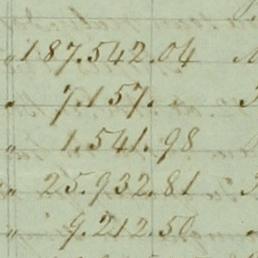 " 187.542.04
" 7.157.
" 1.541.98
" 25.932.81
" 9.212.50